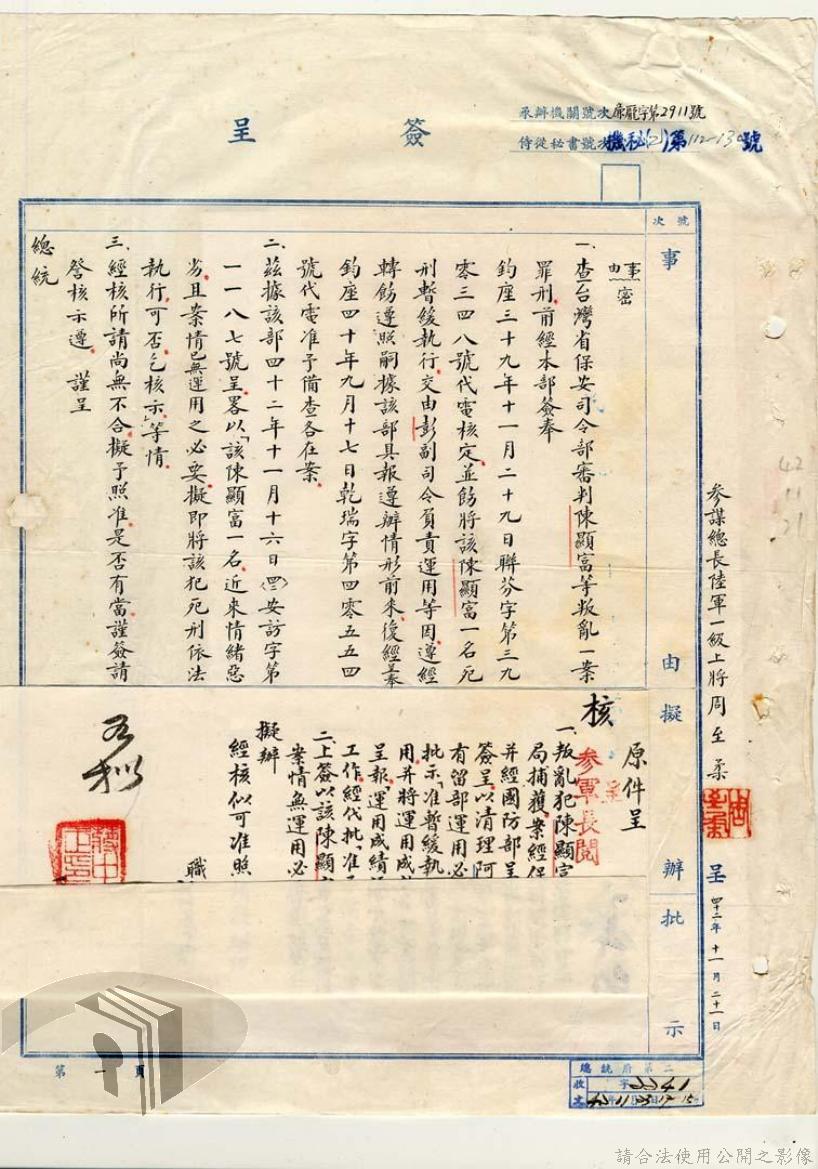 簽呈
承辦機關號次廉龐字第2911號
侍從秘書號次機秘(乙)第112-130號
號次
事由擬辦批示
事由 密
一、查台灣省保安司令部審判陳顯富等叛亂一案
罪刑前經本部簽奉
鈞座三十九年十一月二十九日聯芬字第三九
零三四八號代電核定並飭將該陳顯富一名死
刑暫緩執行交由彭副司令負責運用等因遵經
轉飭遵照嗣據該部具報遵辦情形前來復經奉
鈞座四十年九月十七日乾瑞字第四零五五四
號代電准予備查各在案
二、茲據該部四十二年十一月十六日(四二)安訪字第
一一八七號呈畧以「該陳顯富一名近來情緒惡
劣且案情已無運用之必要擬即將該犯死刑依法
執行可否乞核示」等情
三、經核所請尚無不合擬予照准是否有當謹簽請
詧核示遵 謹呈
總統
參謀總長陸軍一級上將周至柔
呈 四十二年十一月二十一日
42
11
21
原件呈
核
參軍長閱
一、叛亂犯陳顯富
局捕獲案經保
并經國防部呈
簽呈以清理阿
有留部運用必
批示「准暫緩執
用并將運用成
呈報「運用成績
工作經代批「准
二、上簽以該陳顯
案情無運用必
擬辦
經核似可准照
職
第一頁
總統府第二
收文 字2241
42年11月23日17 15
請合法使用公開之影像